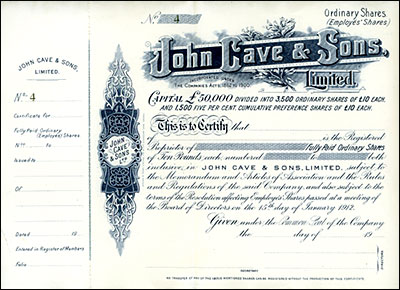 JOHN CAVE & SONS,
LIMITED.
No. 4
Certificate for
Fully Paid Ordinary
(Employés Shares)
Nos. to
Issued to
Of
Dated 19
Entered in Register of Members
Folio
JOHN CAVE
& SONS
LIMITED
No. 4
Ordinary Shares
(Employés' Shares)
John Cave & Sons,
Limited.
INCORPORATED UNDER
THE COMPANIES ACTS, 1862 TO 1900.
CAPITAL £50,000 DIVIDED INTO 3,500 ORDINARY SHARES OF £10 EACH,
AND 1,500 FIVE PER CENT. CUMULATIVE PREFERENCE SHARES OF £10 EACH.
This is to Certify that
of is the Registered
Proprietor of Fully Paid Ordinary Shares
of Ten Pounds each, numbered to both
inclusive, in JOHN CAVE & SONS, LIMITED, subject to
the Memorandum and Articles of Association and the Rules
and Regulations of the said Company, and also subject to the
terms of the Resolution affecting Employés Shares passed at a meeting of
the Board of Directors on the 15th day of January 1912.
Given under the Common Seal of the Company
the day of 19
DIRECTORS
SECRETARY
NO TRANSFER OF ANY OF THE ABOVE MENTIONED SHARES CAN BE REGISTERED WITHOUT THE PRODUCTION OF THIS CERTIFICATE.